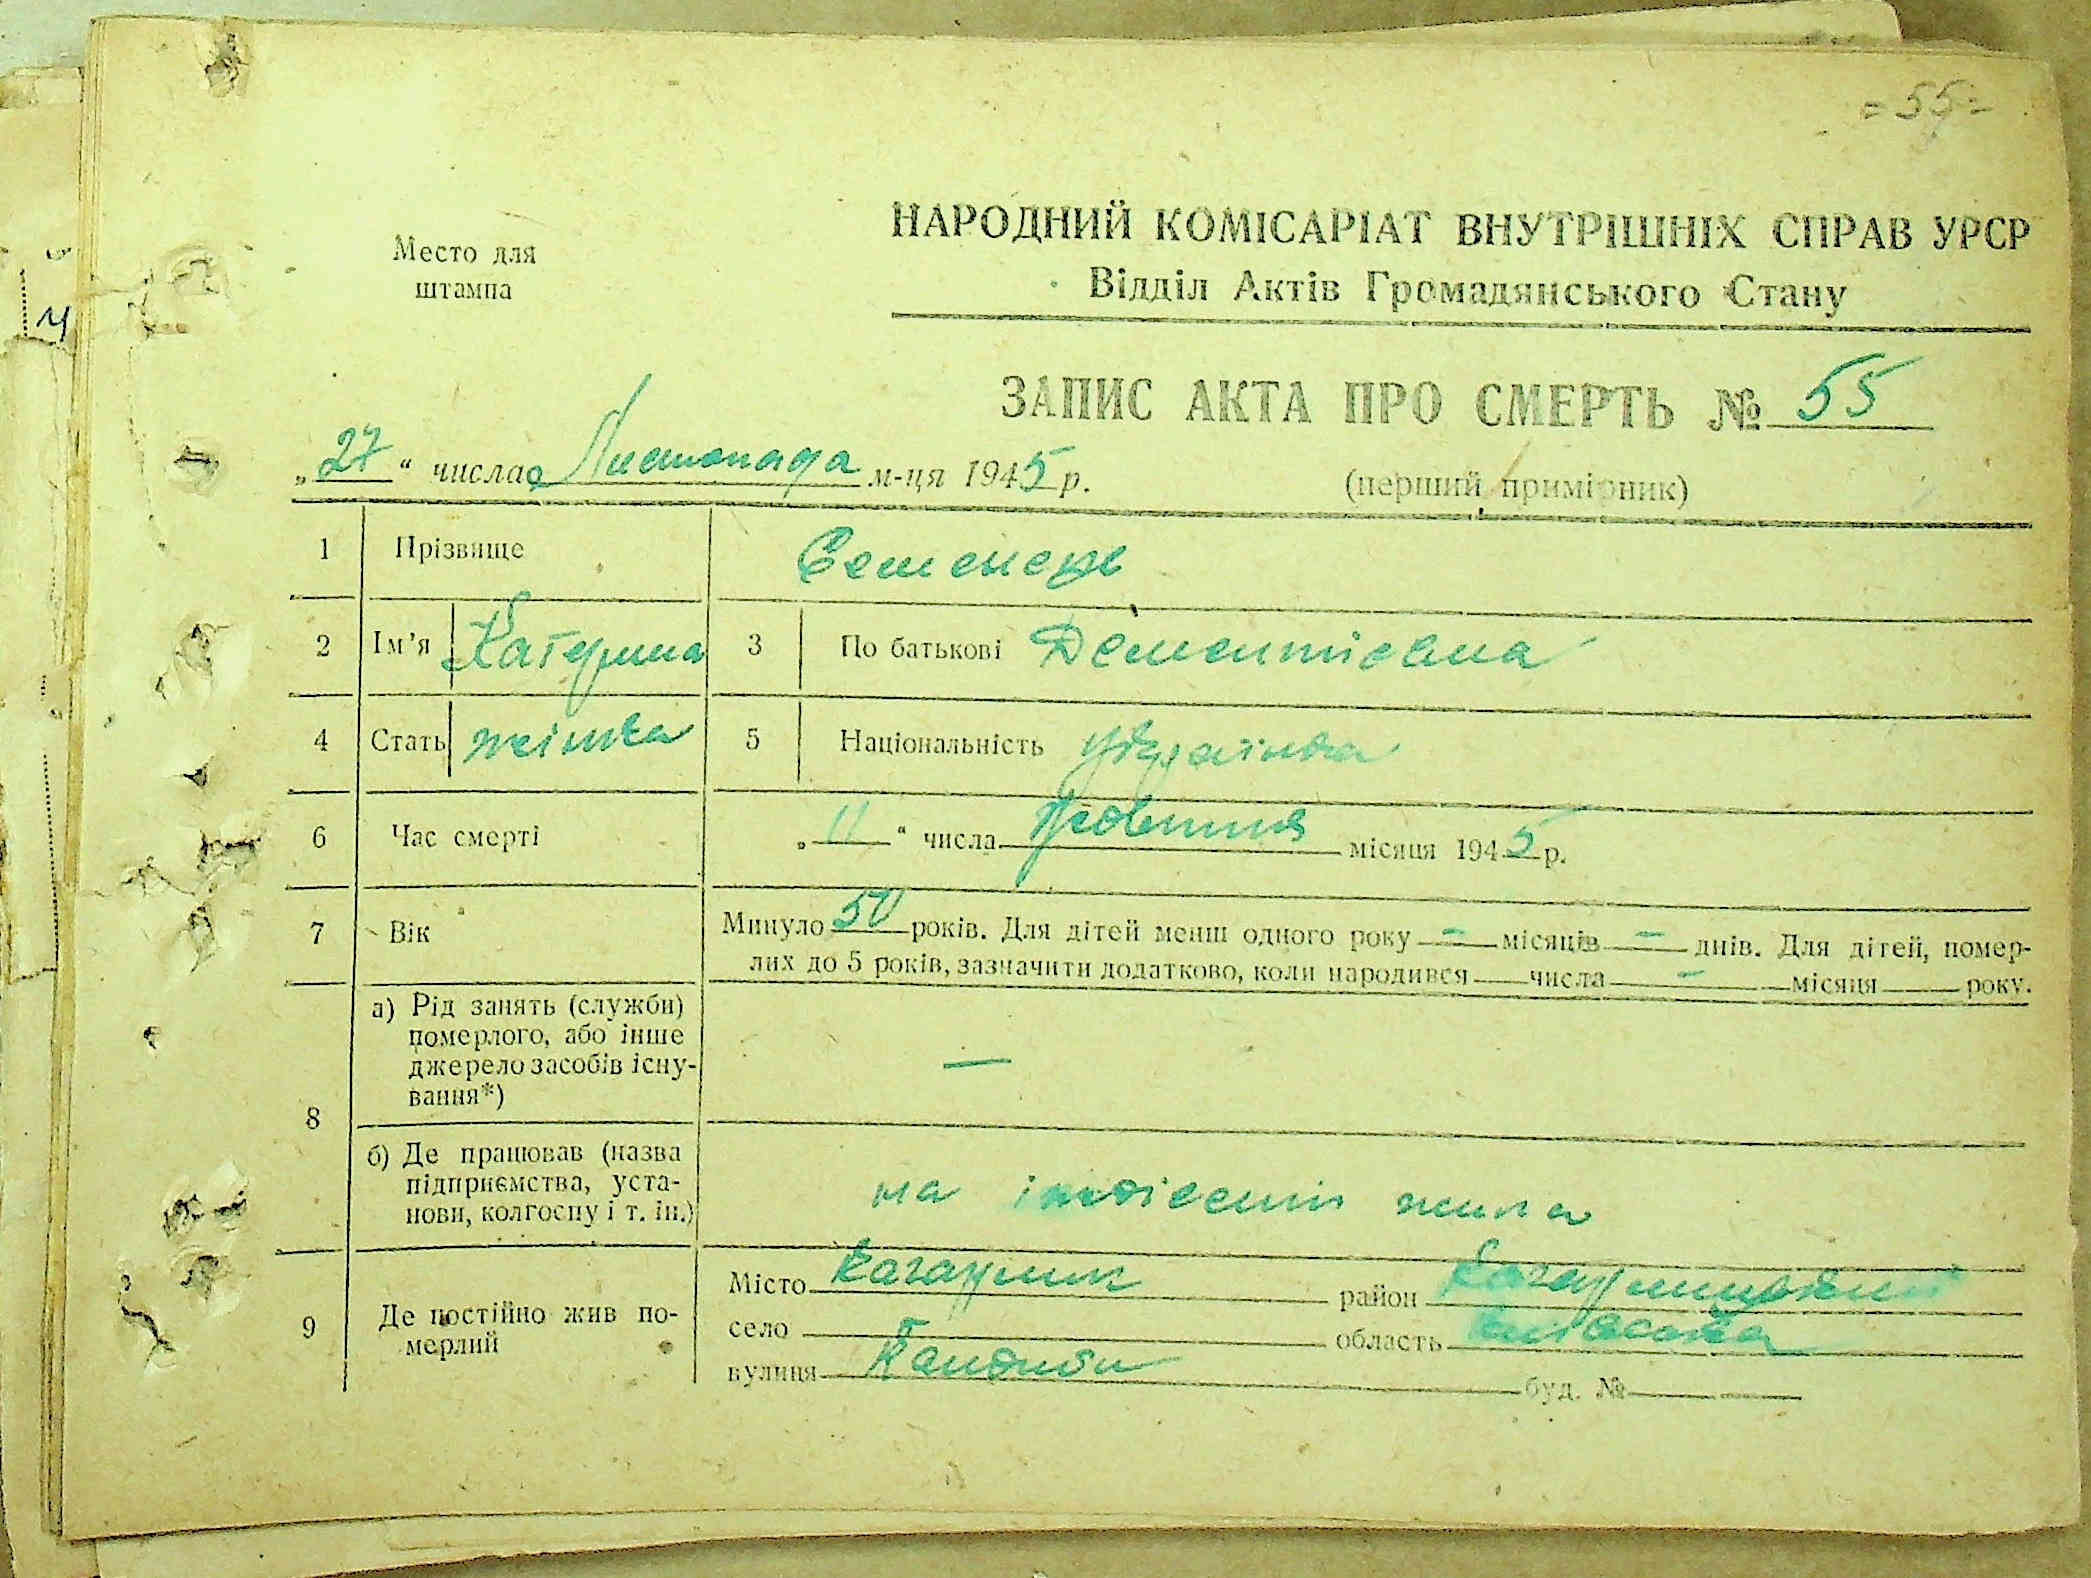 = 55 =
Место для
штампа
НАРОДНИЙ КОМІСАРІАТ ВНУТРІШНІХ СПРАВ УРСР
Відділ Актів Громадянського Стану
ЗАПИС АКТА ПРО СМЕРТЬ № 55
„27“ числа Листопада м-ця 1945 р.
(перший примірник)
1 Прізвище Семенець
2 Ім’я Катерина 3 По батькові Дементієвна
4 Стать жінка 5 Національність українка
6 Час смерті „11“ числа Жовтня місяця 1945 р.
7 Вік Минуло 50 років. Для дітей менш одного року – місяців – днів. Для дітей, помер-
лих до 5 років, зазначити додатково, коли народився числа – місяця року.
8 а) Рід занять (служби)
померлого, або інше
джерело засобів існу-
вання*) —
б) Де працював (назва
підприємства, уста-
нови, колгоспу і т. ін.) на жила
9 Де постійно жив по-
мерлий
Місто Кагарлик район Кагарлицький
село область Київська
вулиця буд. №